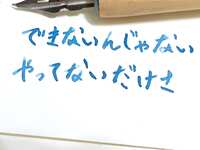 できないんじゃない
やってないだけさ